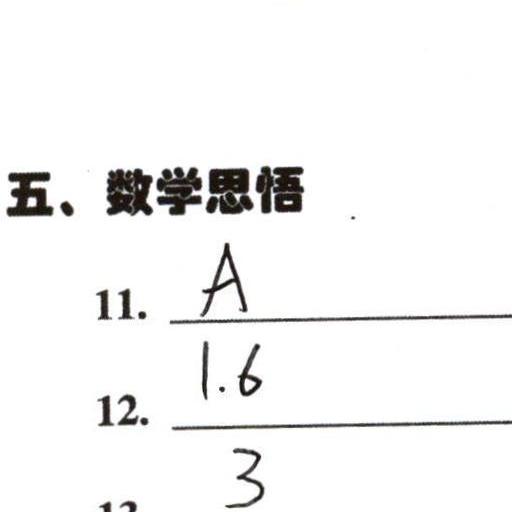 五、数学思悟
11. A
12. 1.6
13. 3